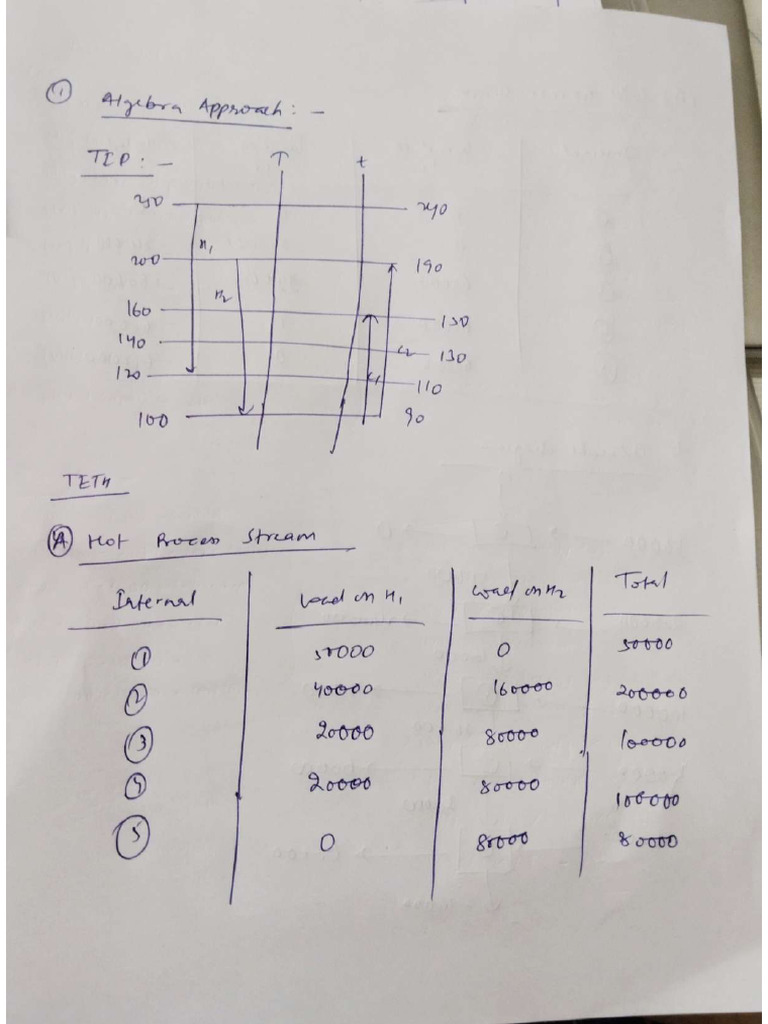 ① Algebra Approach: -
TID: -
T t
250 240
H₁
200 190
H₂
160 150
140 130
C₂
120 110
C₁
100 90
TETH
Ⓐ Hot Process Stream
Interval Load on H₁ Load on H₂ Total
① 50000 0 50000
② 40000 160000 200000
③ 20000 80000 100000
④ 20000 80000 100000
⑤ 0 80000 80000